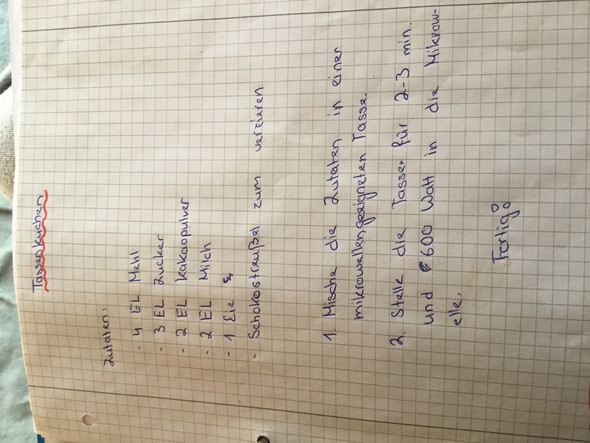 Tassenkuchen
Zutaten:
- 4 EL Mehl
- 3 EL Zucker
- 2 EL Kakaopulver
- 2 EL Milch
- 1 Eie
- Schokostreußel zum verzieren
1. Mische die Zutaten in einer
mikrowellengeeigneten Tasse.
2. Stelle die Tasser für 2-3 min.
und 600 Watt in die Mikrow-
elle.
Fertig!